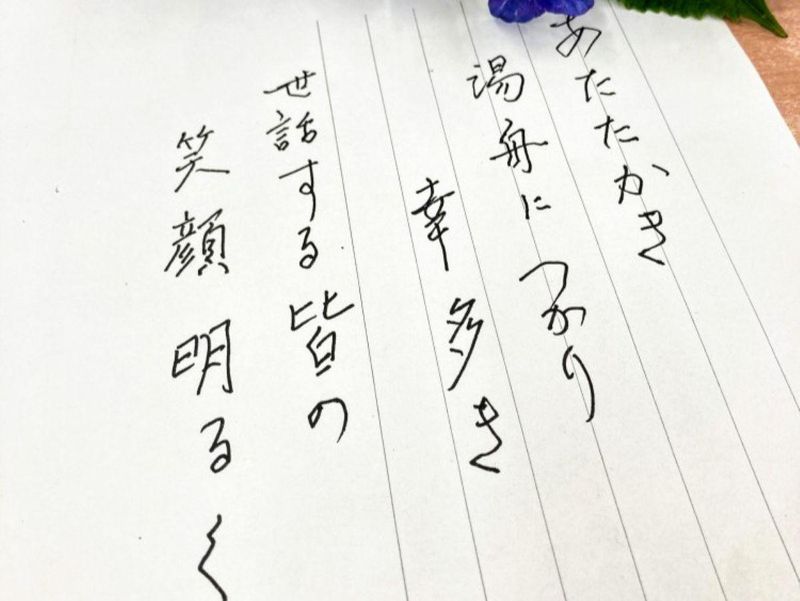 あたたかき
湯舟につかり
幸多き
世話する皆の
笑顔明るく